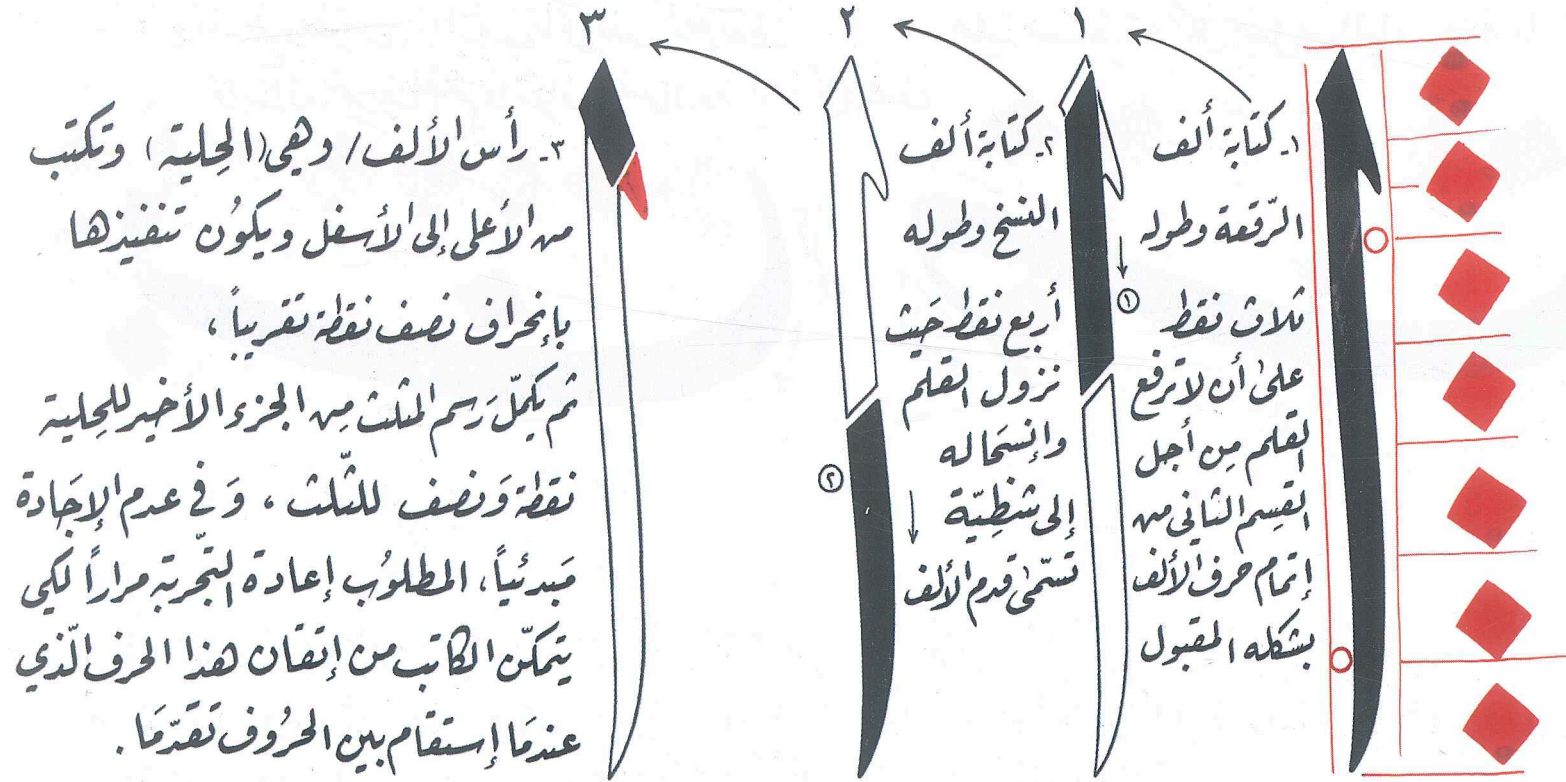 ١
٢
٣
١- كتابة ألف
الرّقعة وطوله
ثلاث نقط
على أن لا ترفع
القلم مِن أجل
القِسم الثاني من
إتمام حرف الألف
بشكله المقبول
①
٢- كتابة ألف
النسخ وطوله
أربع نقط حَيث
نزول القلم
وإنسَحاله
إلى شظِيّة
تسمّى قدم الألف
②
٣- رأس الألف / وهي (الحِلية) وتكتب
من الأعلى إلى الأسفل ويكوُن تنفيذها
بإنحراف نصف نقطة تقريباً ،
ثم يكمّل رَسم المثلث مِن الجزء الأخير للحِلية
نقطة وَنصف للثّلث ، وَفي عدم الإجَادة
مَبدئياً، المطلوُب إعادة التّجربة مراراً لكي
يتمكّن الكاتب من إتقان هذا الحرف الّذي
عندمَا إستقام بين الحرُوف تقدّمَا .